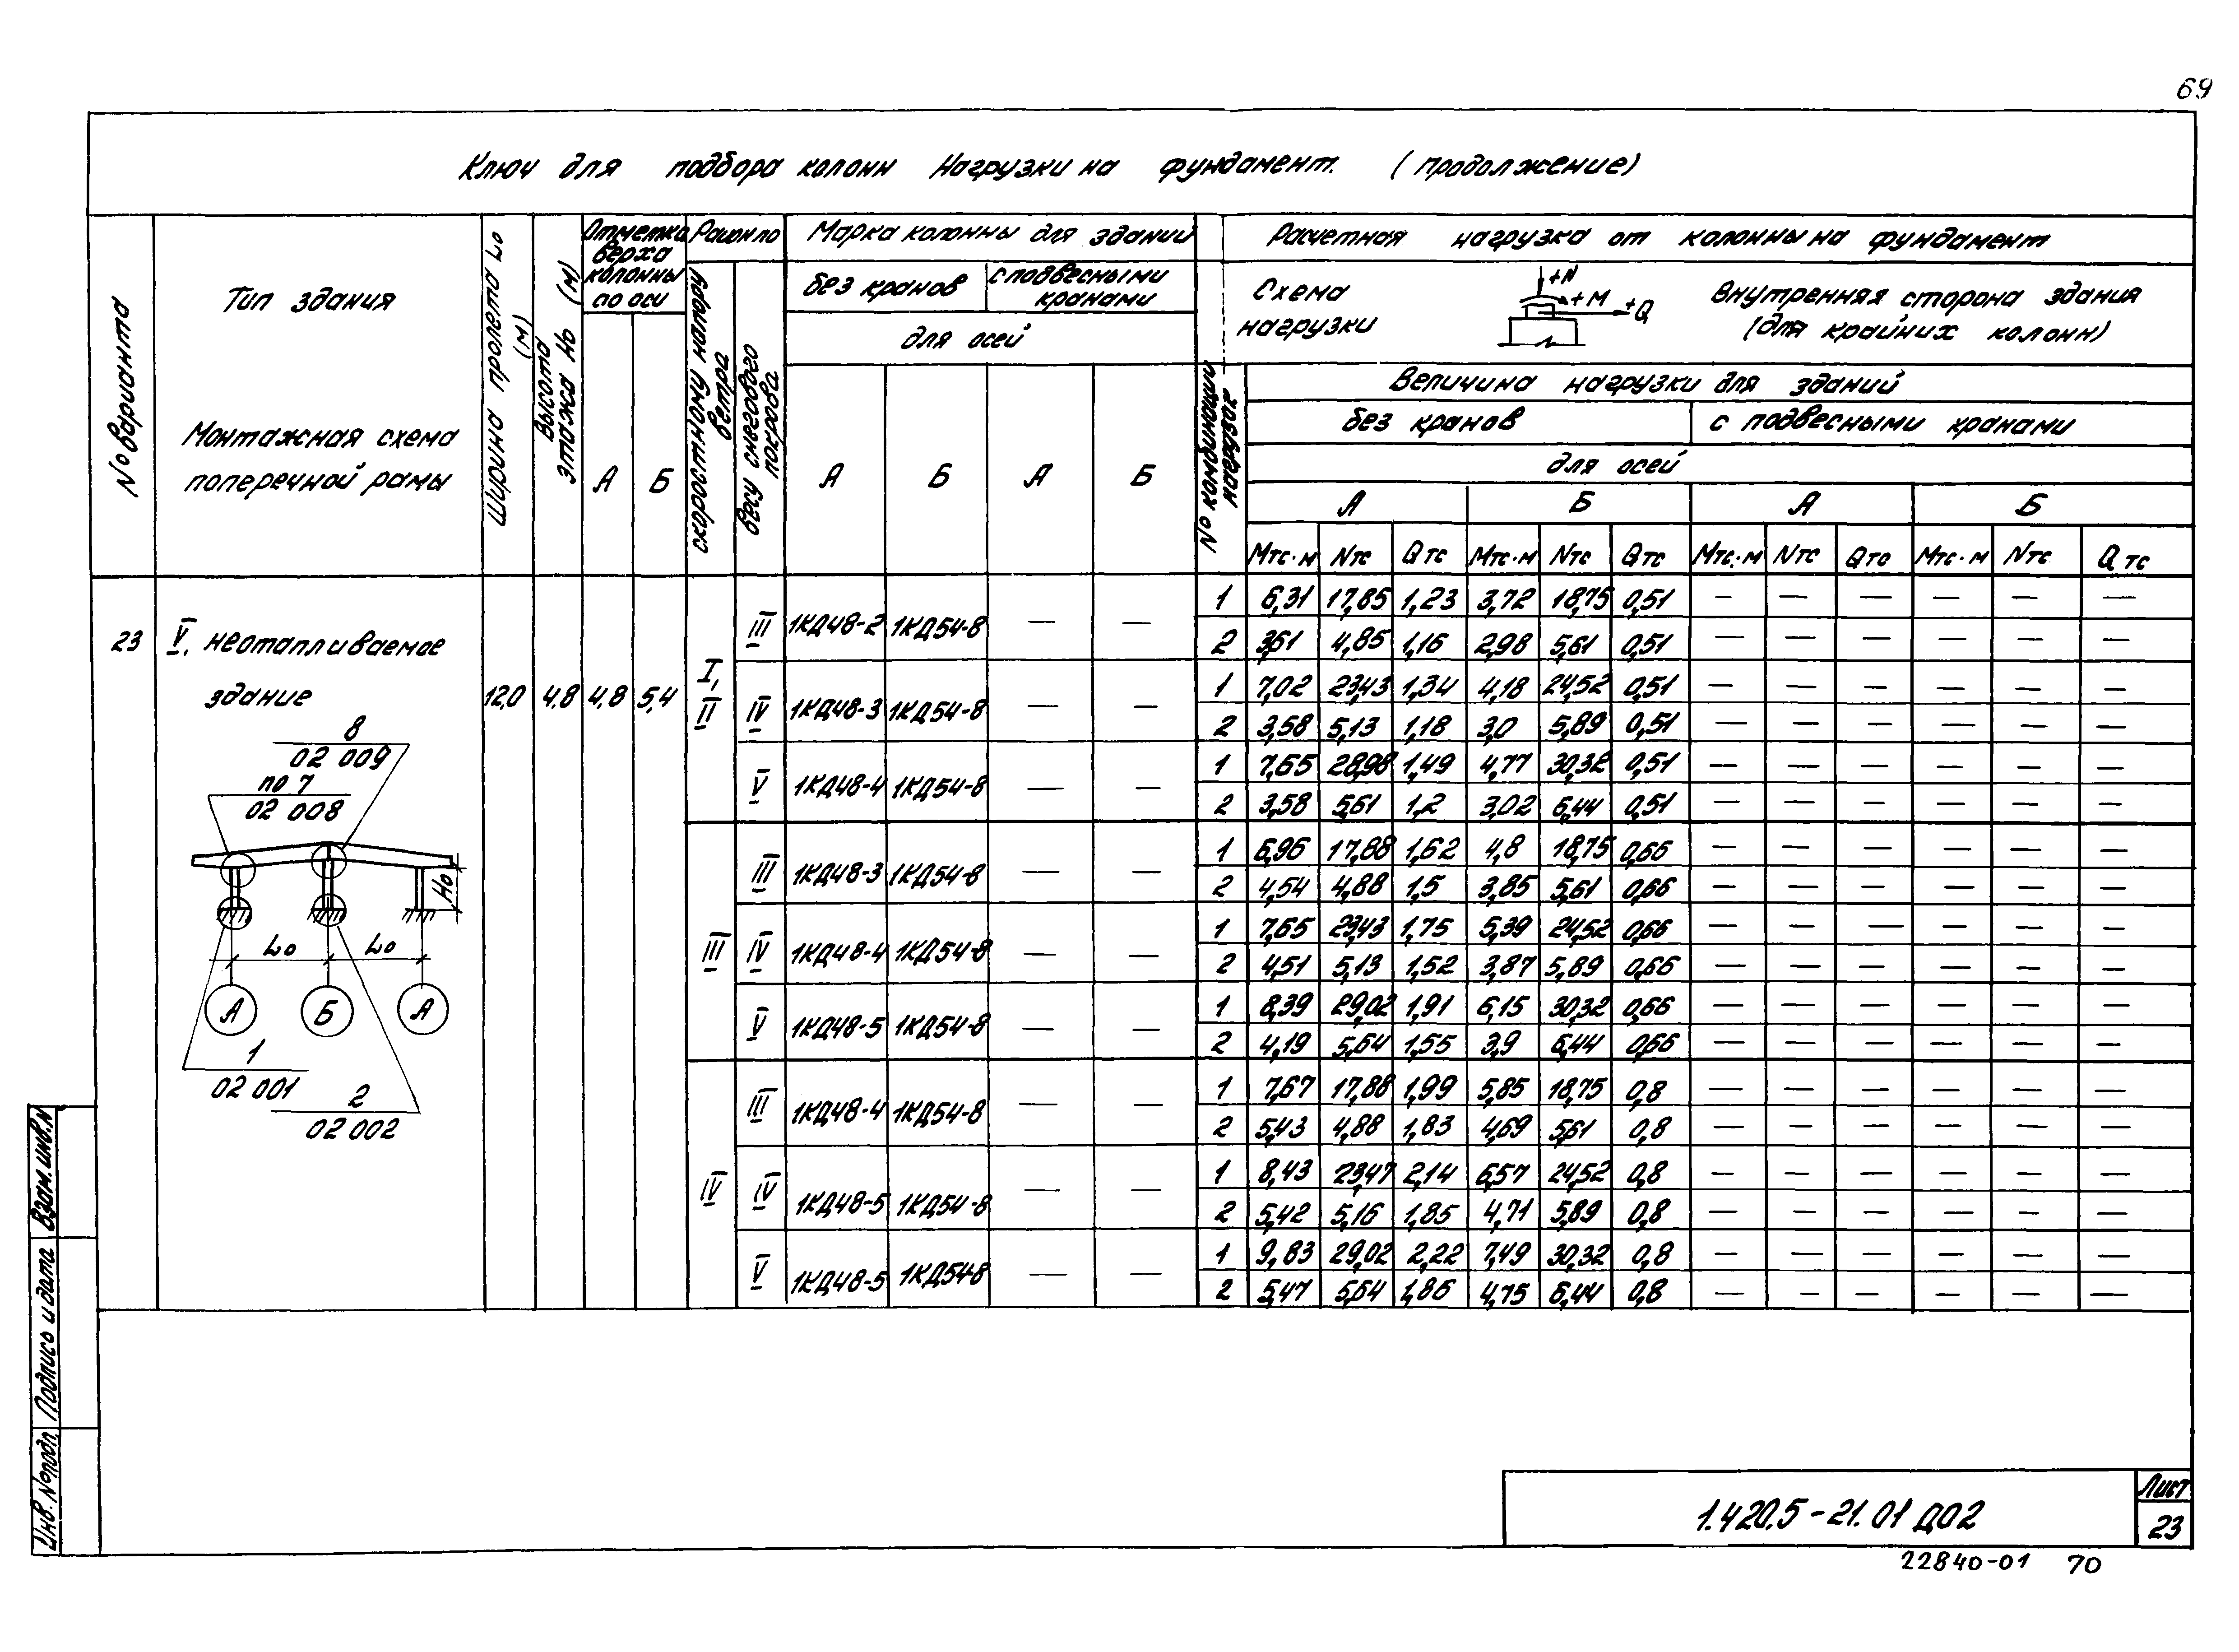 69
Ключ для подбора колонн Нагрузки на фундамент. (продолжение)
№ варианта
Тип здания
Монтажная схема
поперечной рамы
Ширина пролета Lo (м)
Высота этажа Но (м)
Отметка верха колонны по оси
А Б
Район по
скоростному напору ветра
весу снегового покрова
Марка колонны для зданий
без кранов
с подвесными кранами
для осей
А Б А Б
№ комбинации нагрузок
Расчетная нагрузка от колонны на фундамент
Схема нагрузки
+N
+M
+Q
Внутренняя сторона здания
(для крайних колонн)
Величина нагрузки для зданий
без кранов
с подвесными кранами
для осей
А Б А Б
Мтс·м Nтс Qтс Мтс·м Nтс Qтс Мтс·м Nтс Qтс Мтс·м Nтс Qтс
23
V. неотапливаемое
здание
12,0 4,8 4,8 5,4
I, II
III 1КД48-2 1КД54-8 — —
1 6,31 17,85 1,23 3,72 18,75 0,51 — — — — — —
2 3,61 4,85 1,16 2,98 5,61 0,51 — — — — — —
IV 1КД48-3 1КД54-8 — —
1 7,02 23,43 1,34 4,18 24,52 0,51 — — — — — —
2 3,58 5,13 1,18 3,0 5,89 0,51 — — — — — —
V 1КД48-4 1КД54-8 — —
1 7,65 28,98 1,49 4,77 30,32 0,51 — — — — — —
2 3,58 5,61 1,2 3,02 6,44 0,51 — — — — — —
III
III 1КД48-3 1КД54-8 — —
1 6,96 17,88 1,62 4,8 18,75 0,66 — — — — — —
2 4,54 4,88 1,5 3,85 5,61 0,66 — — — — — —
IV 1КД48-4 1КД54-8 — —
1 7,65 23,43 1,75 5,39 24,52 0,66 — — — — — —
2 4,51 5,13 1,52 3,87 5,89 0,66 — — — — — —
V 1КД48-5 1КД54-8 — —
1 8,39 29,02 1,91 6,15 30,32 0,66 — — — — — —
2 4,19 5,64 1,55 3,9 6,44 0,66 — — — — — —
IV
III 1КД48-4 1КД54-8 — —
1 7,67 17,88 1,99 5,85 18,75 0,8 — — — — — —
2 5,43 4,88 1,83 4,69 5,61 0,8 — — — — — —
IV 1КД48-5 1КД54-8 — —
1 8,43 23,47 2,14 6,57 24,52 0,8 — — — — — —
2 5,42 5,16 1,85 4,71 5,89 0,8 — — — — — —
V 1КД48-5 1КД54-8 — —
1 9,83 29,02 2,22 7,49 30,32 0,8 — — — — — —
2 5,47 5,64 1,86 4,75 6,44 0,8 — — — — — —
8
02 009
по 7
02 008
Но
Lo Lo
А Б А
1
02 001
2
02 002
Взам. инв. N
Подпись и дата
Инв. № подл.
1.420.5-21.01 Д02
Лист
23
22840-01 70